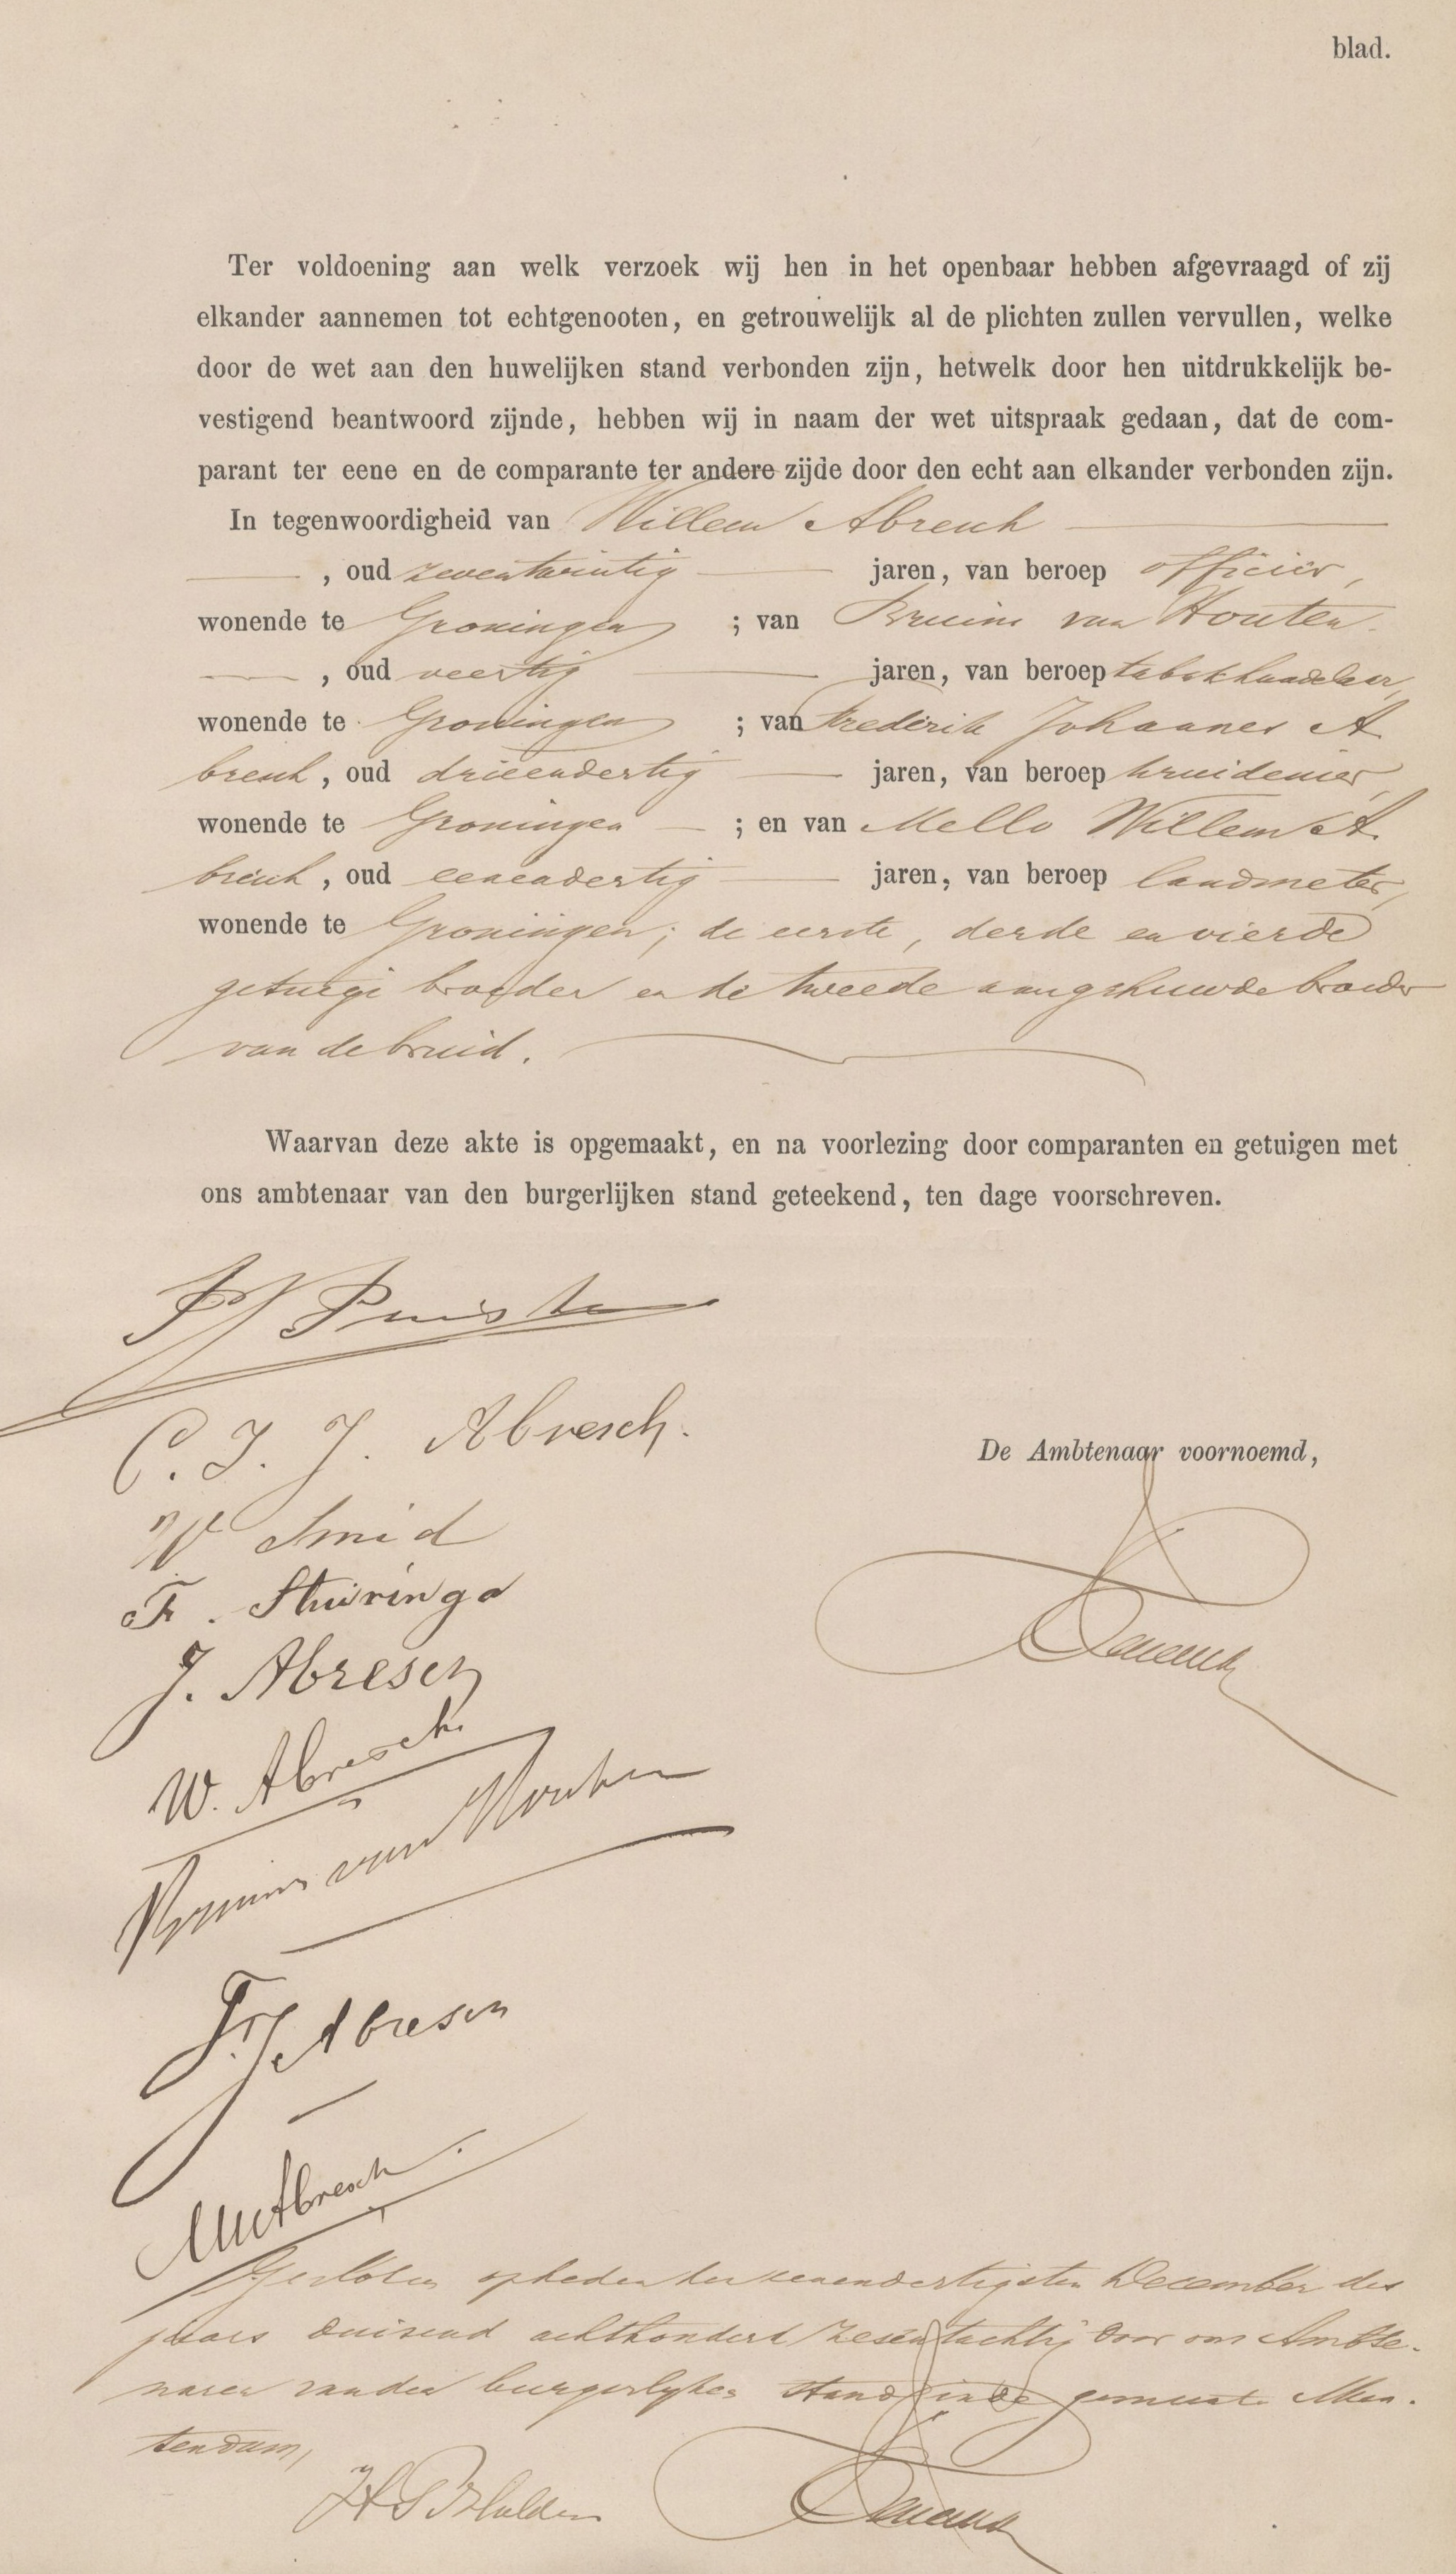 blad.
Ter voldoening aan welk verzoek wij hen in het openbaar hebben afgevraagd of zij
elkander aannemen tot echtgenooten, en getrouwelijk al de plichten zullen vervullen, welke
door de wet aan den huwelijken stand verbonden zijn, hetwelk door hen uitdrukkelijk be-
vestigend beantwoord zijnde, hebben wij in naam der wet uitspraak gedaan, dat de com-
parant ter eene en de comparante ter andere zijde door den echt aan elkander verbonden zijn.
In tegenwoordigheid van Willem Abresch
, oud zeventwintig jaren, van beroep officier,
wonende te Groningen ; van Bruins van Houten
, oud veertig jaren, van beroep tabakhandelaar,
wonende te Groningen ; van Frederik Johannes A
bresch, oud drieendertig jaren, van beroep kruidenier,
wonende te Groningen ; en van Mello Willem A
bresch, oud eenendertig jaren, van beroep landmeter,
wonende te Groningen; de eerste, derde en vierde
getuige broeder en de tweede aangehuwde broeder
van de bruid.
Waarvan deze akte is opgemaakt, en na voorlezing door comparanten en getuigen met
ons ambtenaar van den burgerlijken stand geteekend, ten dage voorschreven.
C. J. J. Abresch.
De Ambtenaar voornoemd,
W Smid
F. Stuivinga
J. Abresch
W. Abresch
Bruins van Houten
F. J. Abresch
MWAbresch
Gesloten op heden den eenendertigsten December des
jaars duizend achthonderd zesentachtig door ons Ambte-
naren van den burgerlijken stand in de gemeente Mun-
tendam,